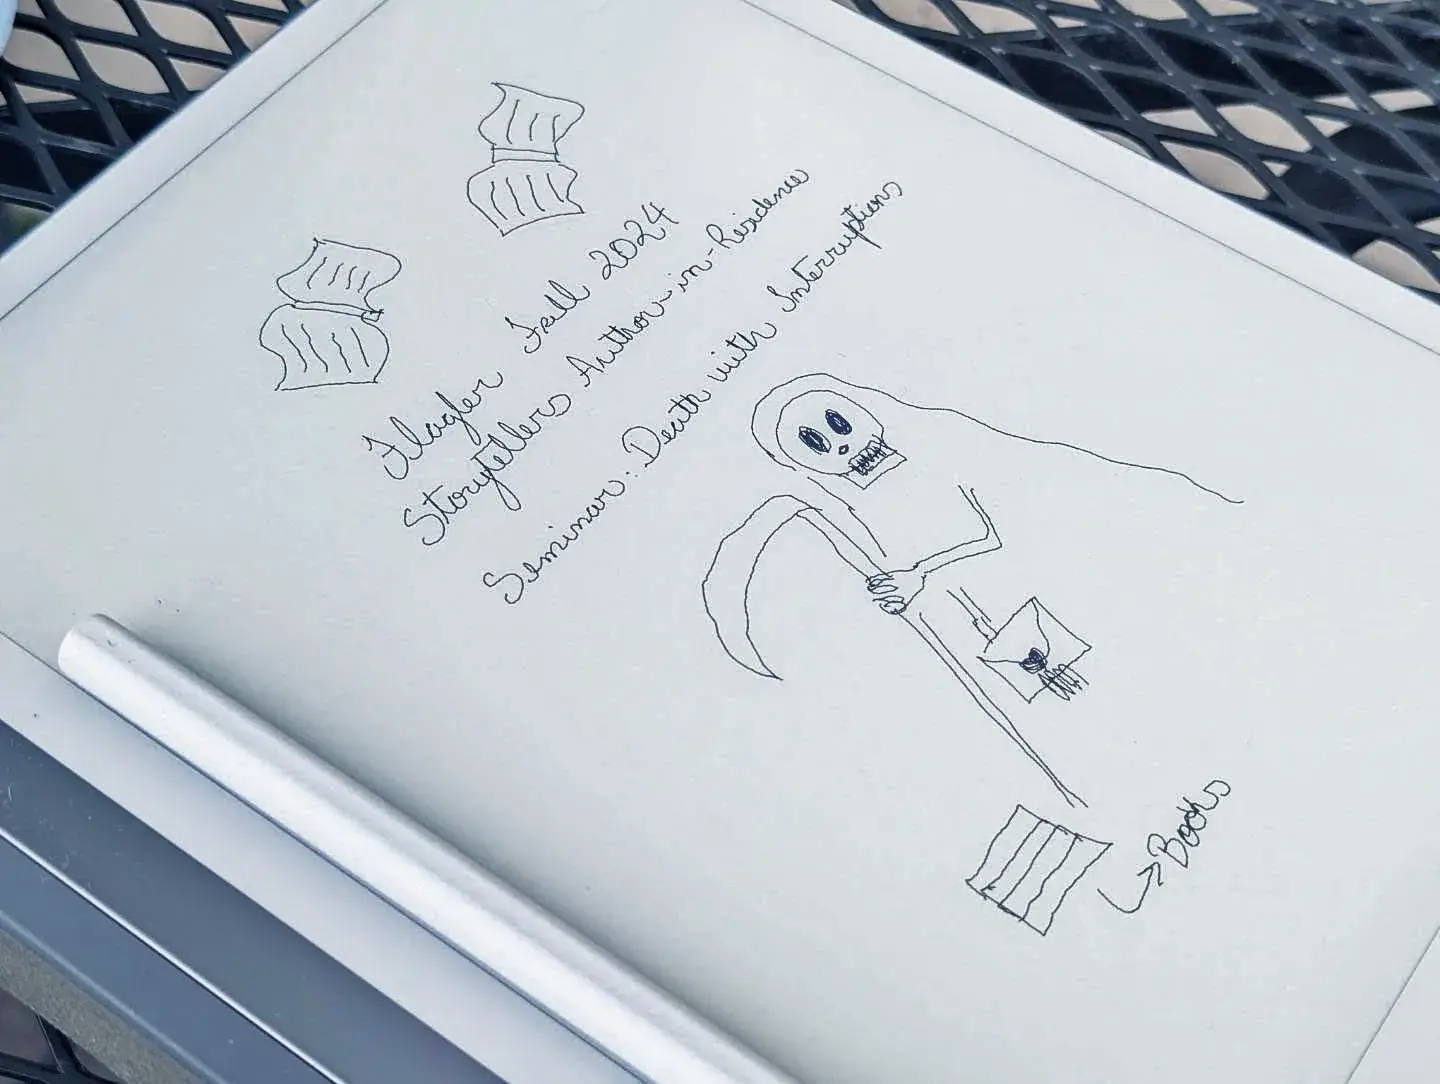 Flagler Fall 2024
Storytellers Author-in-Residence
Seminar: Death with Interruptions
Books